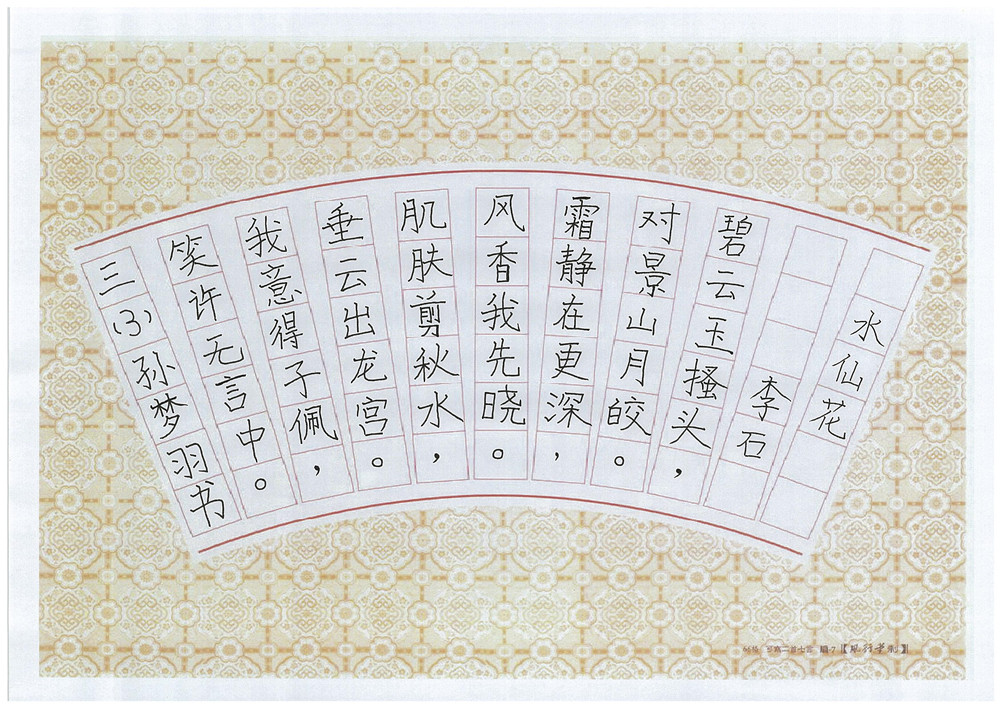 水仙花
李石
碧云玉搔头，
对景山月皎。
霜静在更深，
风香我先晓。
肌肤剪秋水，
垂云出龙宫。
我意得子佩，
笑许无言中。
三(3)孙梦羽书